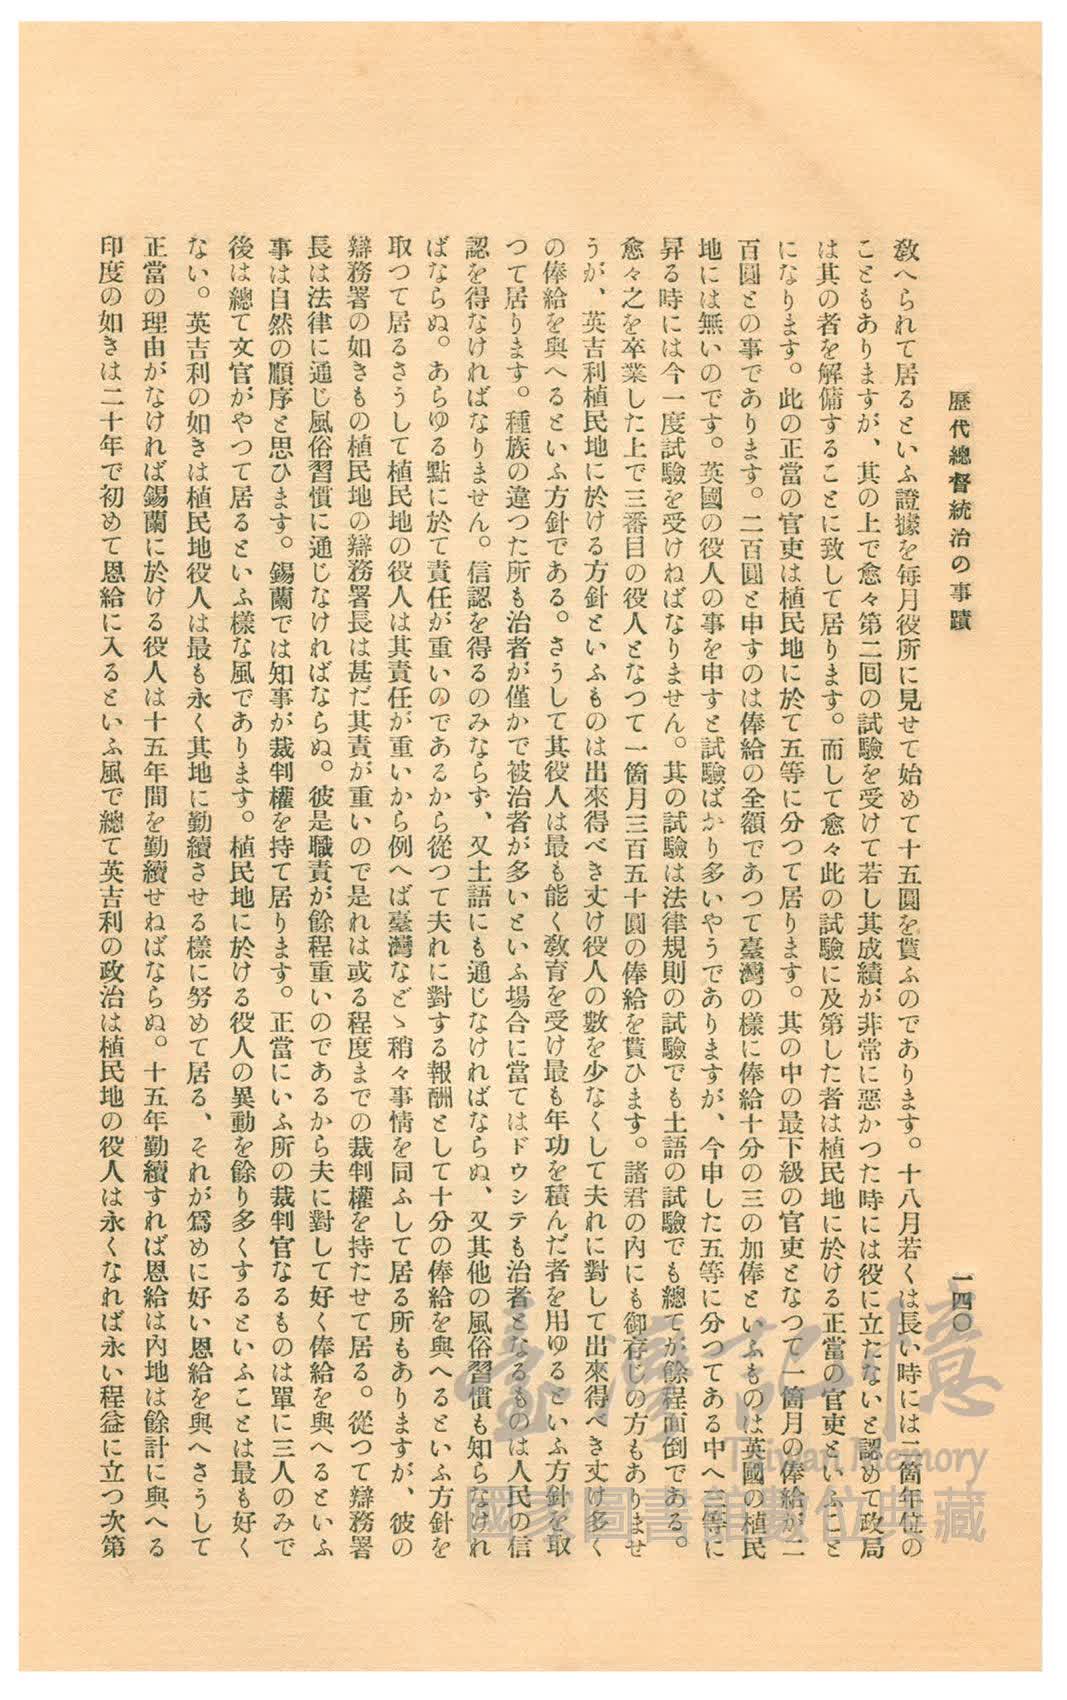 歷代總督統治の事蹟
一四〇
敎へられて居るといふ證據を每月役所に見せて始めて十五圓を貰ふのであります。十八月若くは長い時には二箇年位の
こともありますが、其の上で愈々第二囘の試驗を受けて若し其成績が非常に惡かつた時には役に立たないと認めて政局
は其の者を解傭することに致して居ります。而して愈々此の試驗に及第した者は植民地に於ける正當の官吏といふこと
になります。此の正當の官吏は植民地に於て五等に分つて居ります。其の中の最下級の官吏となつて一箇月の俸給が二
百圓との事であります。二百圓と申すのは俸給の全額であつて臺灣の樣に俸給十分の三の加俸といふものは英國の植民
地には無いのです。英國の役人の事を申すと試驗ばかり多いやうでありますが、今申した五等に分つてある中へ三等に
昇る時には今一度試驗を受けねばなりません。其の試驗は法律規則の試驗でも土語の試驗でも總てが餘程面倒である。
愈々之を卒業した上で三番目の役人となつて一箇月三百五十圓の俸給を貰ひます。諸君の內にも御存じの方もありませ
うが、英吉利植民地に於ける方針といふものは出來得べき丈け役人の數を少なくして夫れに對して出來得べき丈け多く
の俸給を與へるといふ方針である。さうして其役人は最も能く敎育を受け最も年功を積んだ者を用ゆるといふ方針を取
つて居ります。種族の違つた所も治者が僅かで被治者が多いといふ場合に當てはドウシテも治者となるものは人民の信
認を得なければなりません。信認を得るのみならず、又土語にも通じなければならぬ、又其他の風俗習慣も知らなけれ
ばならぬ。あらゆる點に於て責任が重いのであるから從つて夫れに對する報酬として十分の俸給を與へるといふ方針を
取つて居るさうして植民地の役人は其責任が重いから例へば臺灣などゝ稍々事情を同ふして居る所もありますが、彼の
辯務署の如きもの植民地の辯務署長は甚だ其責が重いので是れは或る程度までの裁判權を持たせて居る。從つて辯務署
長は法律に通じ風俗習慣に通じなければならぬ。彼是職責が餘程重いのであるから夫に對して好く俸給を與へるといふ
事は自然の順序と思ひます。錫蘭では知事が裁判權を持て居ります。正當にいふ所の裁判官なるものは單に三人のみで
後は總て文官がやつて居るといふ樣な風であります。植民地に於ける役人の異動を餘り多くするといふことは最も好く
ない。英吉利の如きは植民地役人は最も永く其地に勤續させる樣に努めて居る、それが爲めに好い恩給を與へさうして
正當の理由がなければ錫蘭に於ける役人は十五年間を勤續せねばならぬ。十五年勤續すれば恩給は內地は餘計に與へる
印度の如きは二十年で初めて恩給に入るといふ風で總て英吉利の政治は植民地の役人は永くなれば永い程益に立つ次第
臺灣記憶
Taiwan Memory
國家圖書館數位典藏